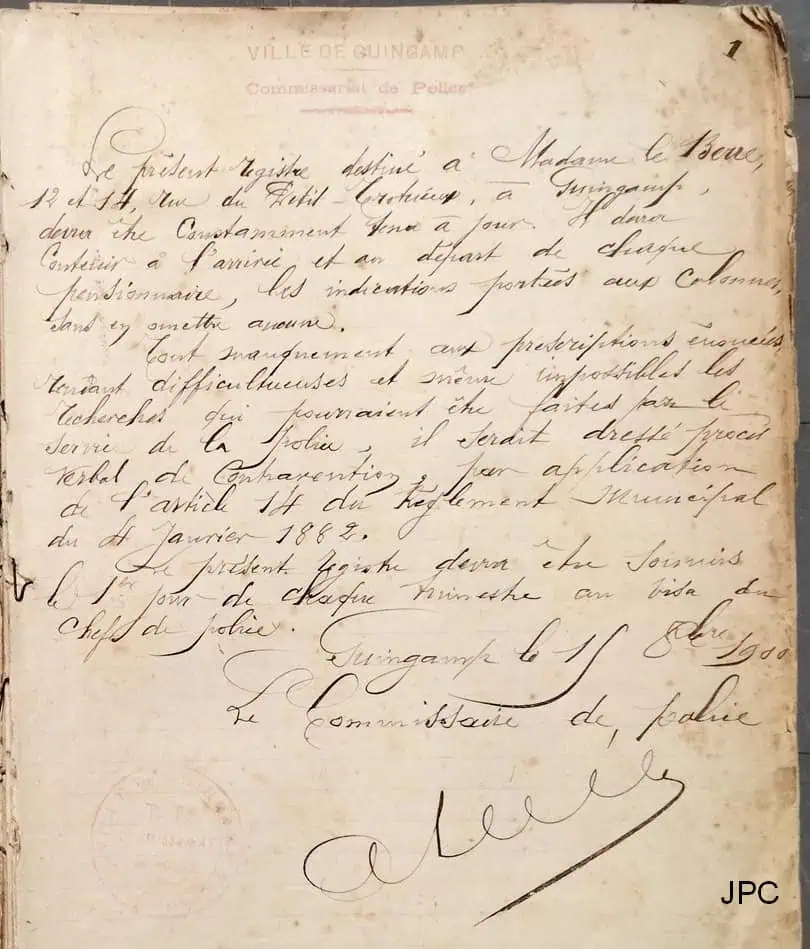 1
VILLE DE GUINGAMP
Commissariat de Police
Le présent registre destiné à Madame le Berre,
12 et 14, rue du Petit-Trotrieux, à Guingamp,
devra être constamment tenu à jour. Il devra
contenir à l'arrivée et au départ de chaque
pensionnaire, les indications portées aux colonnes,
sans en omettre aucune.
Tout manquement aux prescriptions énoncées,
rendant difficultueuses et même impossibles les
recherches qui pourraient être faites par le
service de la police, il serait dressé procès
verbal de contravention, par application
de l'article 14 du Règlement Municipal
du 4 Janvier 1882.
Le présent registre devra être soumis
le 1er jour de chaque trimestre au visa du
chef de police.
Guingamp le 15 8bre 1900
Le Commissaire de police
JPC